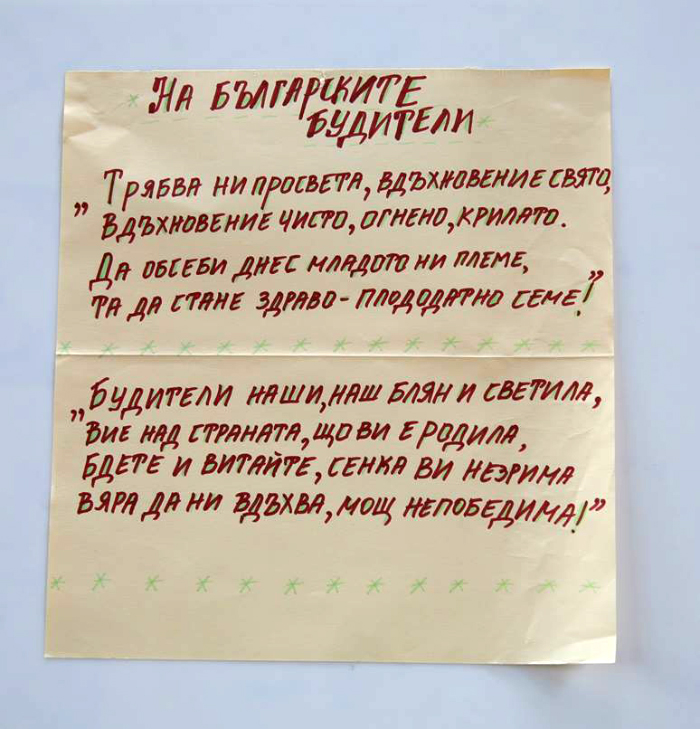 На българските
будители
„Трябва ни просвета, вдъхновение свято,
Вдъхновение чисто, огнено, крилато.
Да обсеби днес младото ни племе,
та да стане здраво - плододатно семе!”
„Будители наши, наш блян и светила,
Вие над страната, що ви е родила,
бдете и витайте, сенка ви незрима
вяра да ни вдъхва, мощ непобедима!”